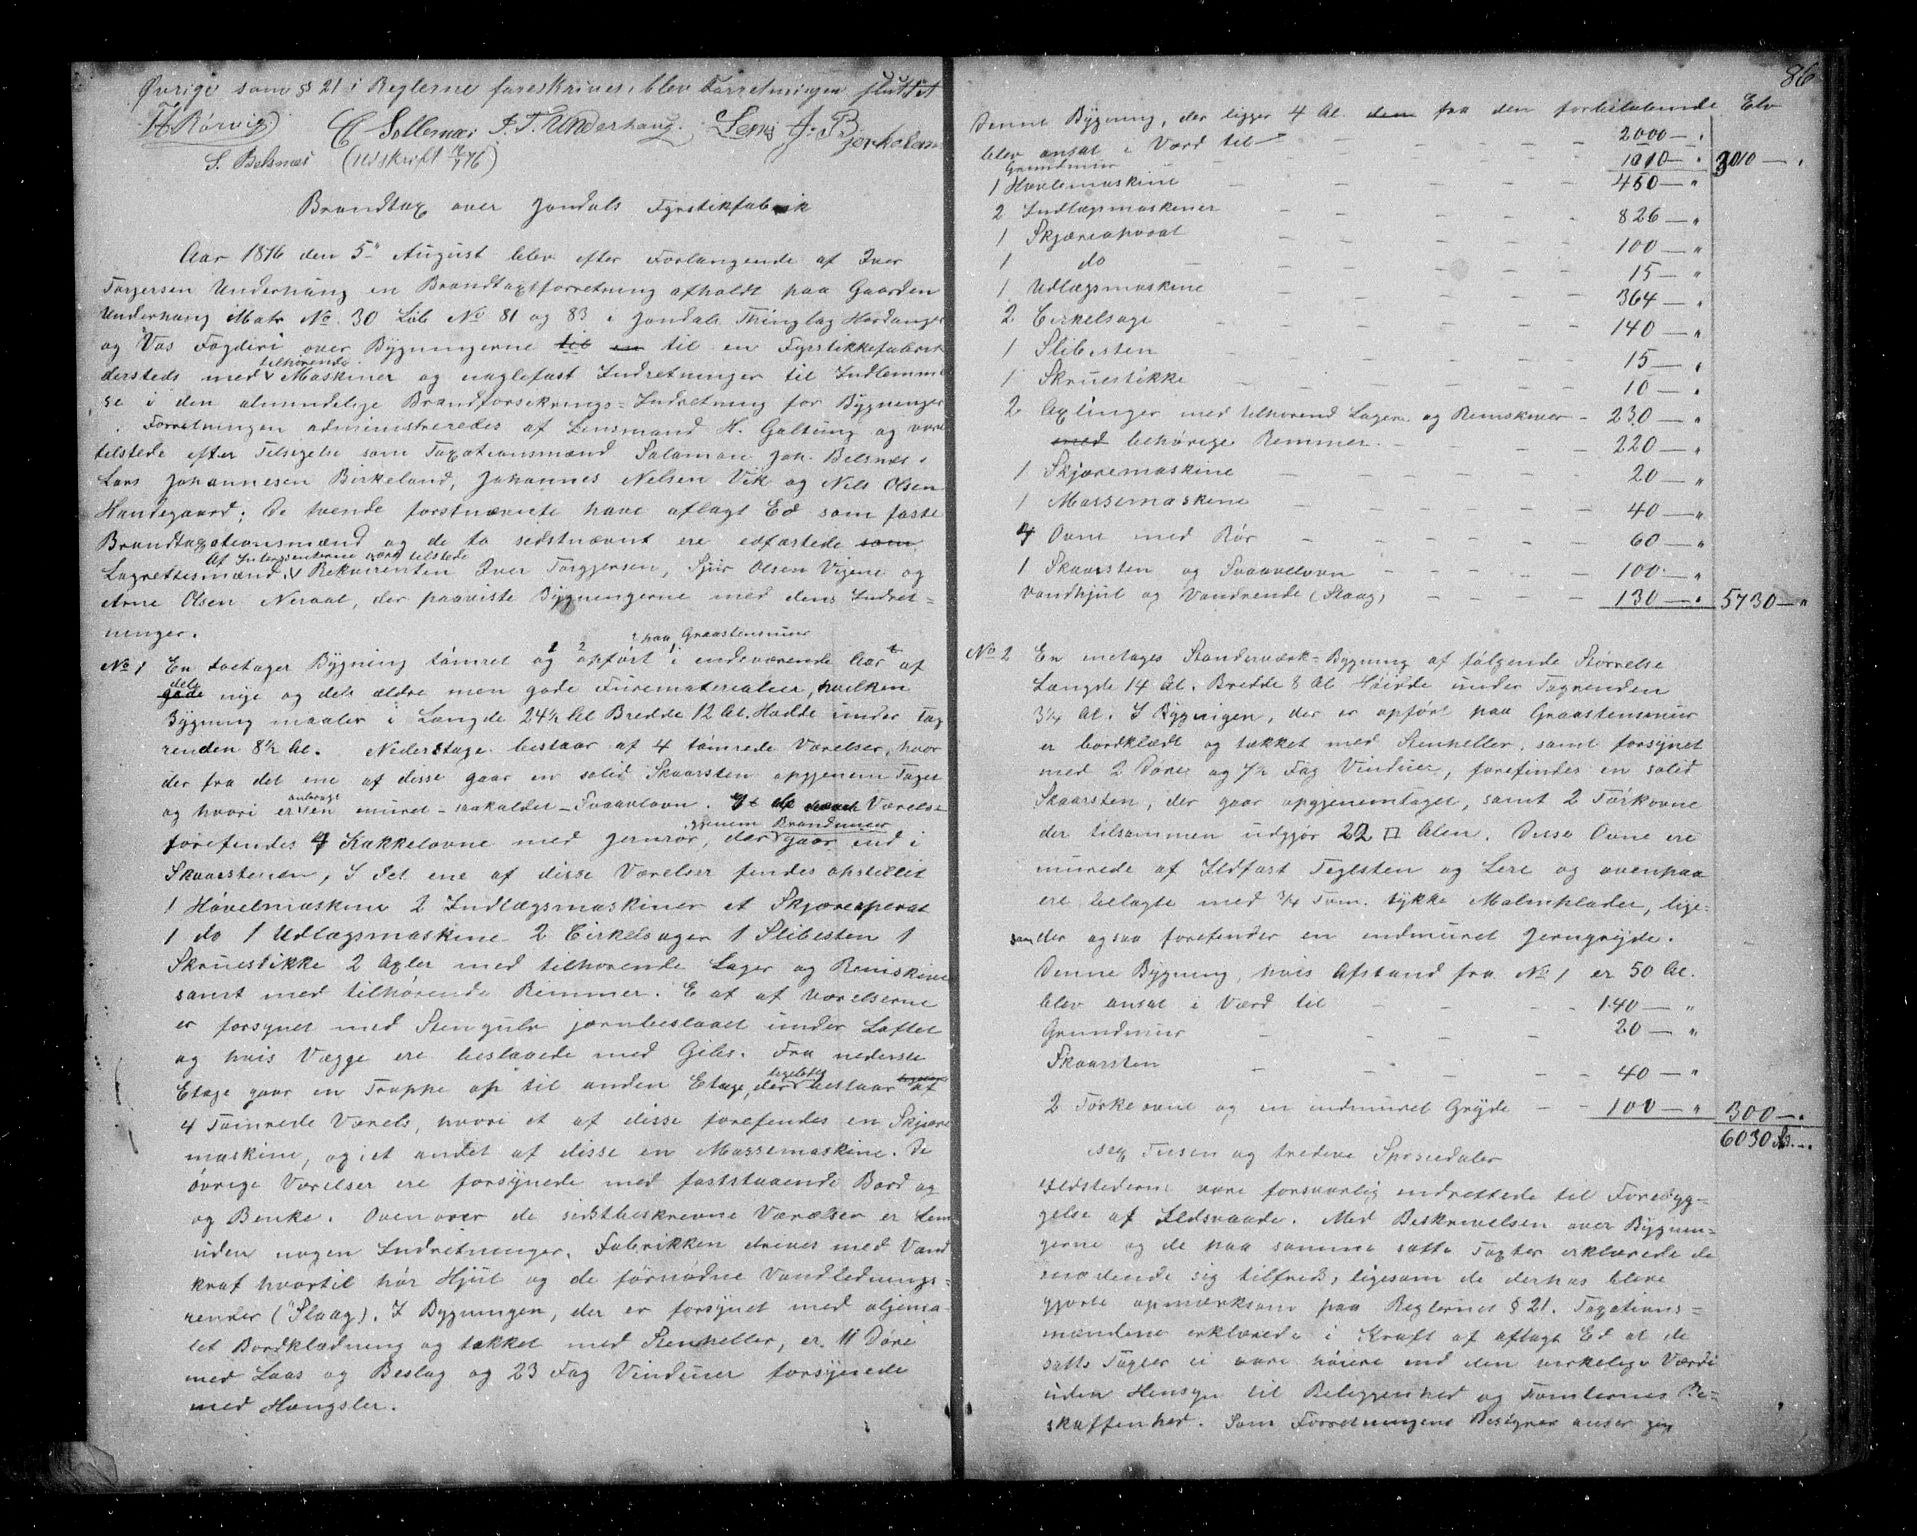 Øvrige som § 21 i Reglerne foreskrives, blev Forretningen sluttet
H Rørvig C Sollesnæs I. T. Underhaug. Lars J. Bjerkeland
S. Belsnæs (Udskrift /76)
Brandtaxt over Jondals Fyrstikfabrik
Aar 1876 den 5te August blev efter Forlangende af Iver
Torgersen Underhaug en Brandtaxtforretning afholdt paa Gaarden
Underhaug Matr No 30 Løb No 81 og 83 i Jondals Thinglag Hardanger
og Vos Fogderi over Bygningerne til en til en Fyrstikkefabrik
tilhørende
dersteds med Maskiner og naglefast Indretninger til Indlemmel
se i den almindelige Brandforsikrings-Indretning for Bygninger
Forretningen administreredes af Lensmand H. Galtung og vare
tilstede efter Tilsigelse som Taxationsmænd Salamon Joh. Belsnæs,
Lars Johannesen Birkeland, Johannes Nelsen Vik og Nels Olsen
Handegaard; De tvende førstnævnte have aflagt Ed som faste
Brandtaxationsmænd og de to sidstnævnt ere edfæstede som
Af Interessenterne vare tilstede
Lagrettesmænd. Rekvirenten Iver Torgjersen, Sjur Olsen Vigene og
Arne Olsen Neraal, der paaviste Bygningerne med dens Indret-
ninger.
paa Graastensmuur
No 1 En toetages Bygning tømret og opført i indeværende Aar af
dels
gode nye og dels ældre men gode Furematerialier, hvilken
Bygning maaler i Længde 24½ Al Bredde 12 Al. Høide under Tag
renden 8½ Al. Nederetage bestaar af 4 tømrede Værelser, hvor
der fra det ene af disse gaar en solid Skaarsten opgjenem Taget
anbragt
og hvori er en muret saakaldet Svaavlovn. I de Værelse
gjenem Brandmuur
forefindes 4 Kakkelovne med Jernrør, der gaar ind i
Skaarstenen, I det ene af disse Værelser findes opstillet
1 Høvelmaskine 2 Indlægsmaskiner et Skjæreaperat
1 do 1 Udlægsmaskine 2 Cirkelsager 1 Slibesten 1
Skruestikke 2 Axler med tilhørende Lager og Remskive
samt med tilhørende Remmer. Et af Værelserne
er forsynet med Stengulv jærnbeslaaet under Loftet
og hvis Vægge ere beslaaede med Gibs. Fra nederste
ligeledes
Etage gaar en Trappe op til anden Etage, der bestaar af
4 Tømrede Værels, hvori et af disse forefindes en Skjære
maskine, og i et andet af disse en Massemaskine. De
øvrige Værelser ere forsynede med faststaaende Bord og
og Benke. Ovenover de sidstbeskrevne Værelser er Lem
uden nogen Indretninger. Fabrikken drives med Vand
kraf hvortil hør Hjul og de fornødne Vandlednings-
render (Slaag). I Bygningen, der er forsynet med oljema-
let Bordklædning og tækket med Stenheller, er 11 Døre
med Laas og Beslag og 23 Fag Vinduer forsynede
med Hængsler.
86
Denne Bygning, der ligger 4 Al. den fra den forbiløbende Elv
blev ansat i Værd til 2000 — "
Grundmuur 1010 — " 3010 — "
1 Høvlemaskine 450 — "
2 Indlægsmaskiner 826 — "
1 Skjæreaparat 100 — "
1 do 15 — "
1 Udlægsmaskine 364 — "
2 Cirkelsage 140 — "
1 Slibesten 15 — "
1 Skruestikke 10 — "
2 Axlinger med tilhørend Lagere og Remskiver 230 — "
med behørige Remmer 220 — "
1 Skjæremaskine 20 — "
1 Massemaskine 40 — "
4 Ovne med Rør 60 — "
1 Skaarsten og Svaavelovn 100 — "
Vandhjul og Vandrende (Slaag) 130 — " 5730 — "
No 2 En enetages Standerværk-Bygning af følgende Størrelse
Længde 14 Al. Bredde 8 Al Høide under Tagrenden
3¼ Al. I Bygnigen, der er opført paa Graastensmuur
er bordklædt og tækket med Stenheller, samt forsynet
med 2 Døre og 7½ Fag Vinduer, forefindes en solid
Skaarsten, der gaar opgjenemtaget, samt 2 Tørkovne
der tilsammen udgjør 22 □ Alen. Disse Ovne ere
murede af Ildfast Teglsten og Lere og ovenpaa
ere belagte med ¾ Tom. tykke Malmplader, lige-
som der ogsaa forefinder en indmuret Jerngryde.
Denne Bygning, hvis Afstand fra No 1 er 50 Al.
blev ansat i Værd til 140 — "
Grundmuur 20 — "
Skaarsten 40 — "
2 Tørkeovne og en indmuret Gryde 100 — " 300 — "
6030
sex Tusen og tredive Speciedaler
Ildstederne vare forsvarlig indrettede til Forebyg-
gelse af Ildsvaade. Med Beskrivelsen over Bygnin-
gerne og de paa samme satte Taxter erklærede de
mødende sig tilfreds, ligesom de derhos bleve
gjorte opmærksom paa Reglernes § 21. Taxations-
mændene erklærede i Kraft af aflagt Ed at de
satte Taxter ei vare høiere end den virkelige Værdi
uden Hensyn til Beliggenhed og Tomternes Be-
skaffenhed. Som Forretningens Besigner anser jeg